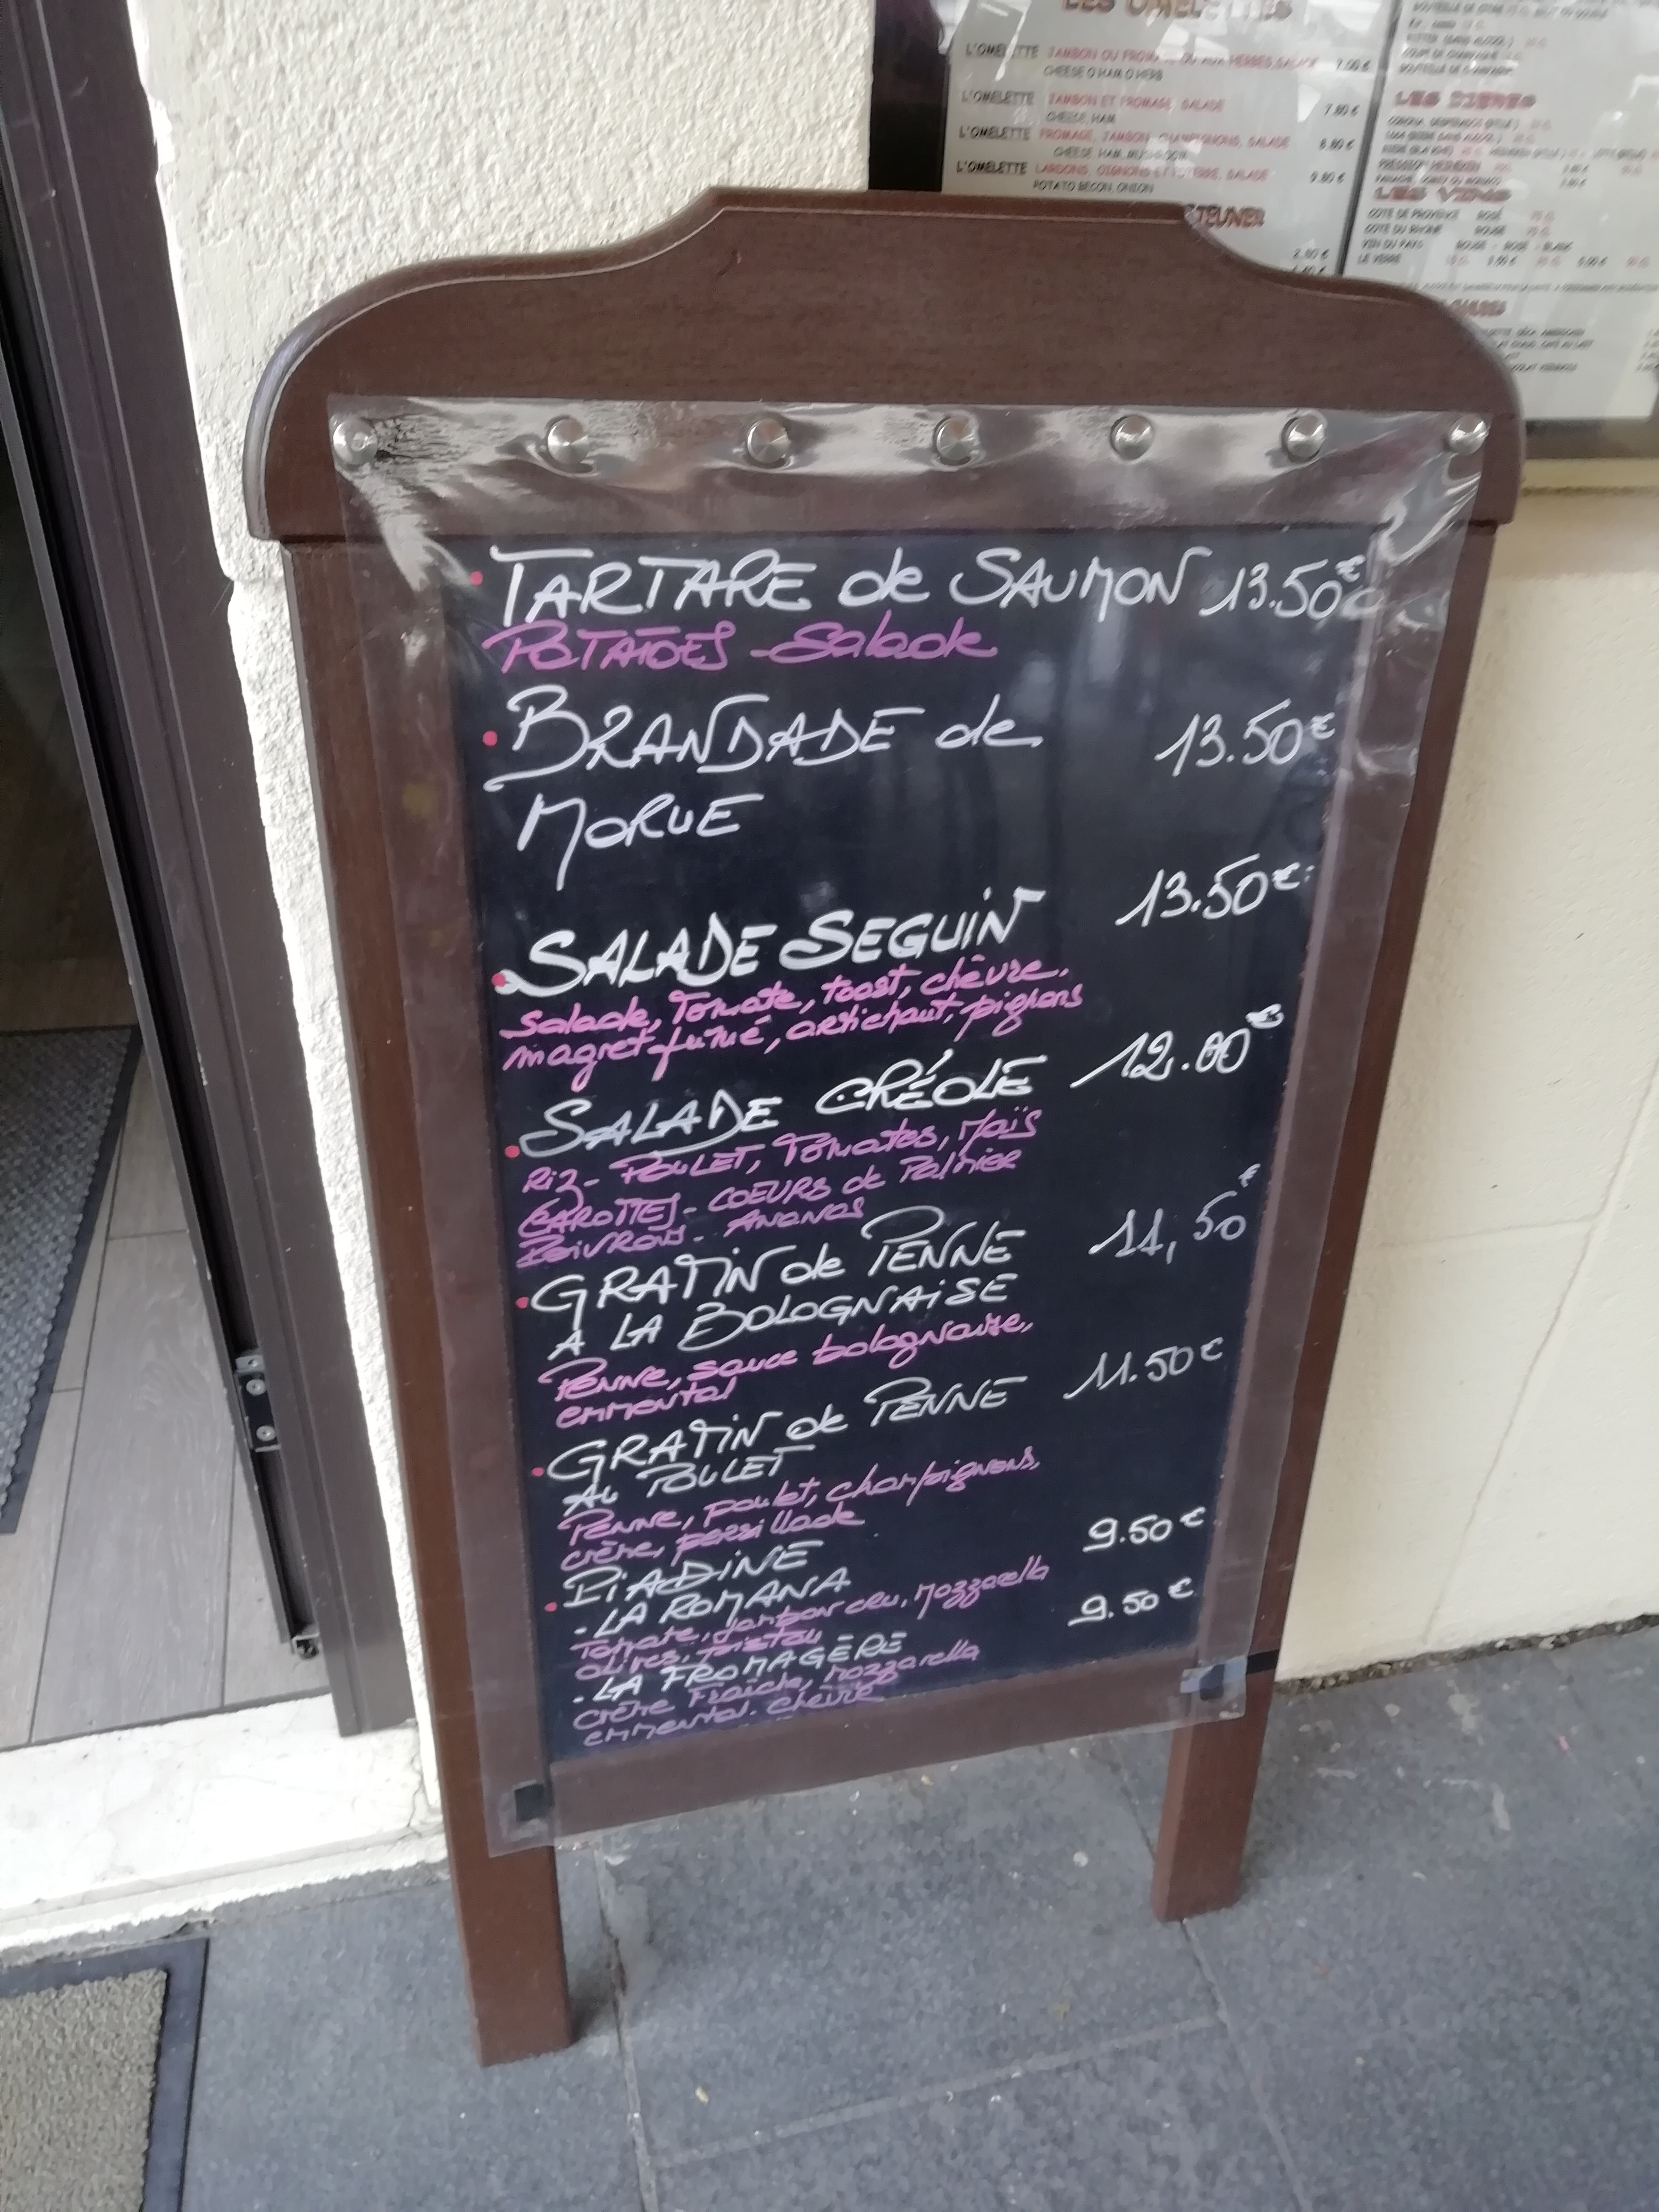 LES OMELETTES
L'OMELETTE JAMBON OU FROMAGE OU AUX HERBES, SALADE 7.00 €
CHEESE O HAM O HERB
L'OMELETTE JAMBON ET FROMAGE, SALADE 7.80 €
CHEESE, HAM
L'OMELETTE FROMAGE, JAMBON, CHAMPIGNONS, SALADE 8.80 €
CHEESE, HAM, MUSHROOM
L'OMELETTE LARDONS, OIGNONS ET POM TERRE, SALADE 9.80 €
POTATO BECON, ONION
JEUNER
2.80 €
LES BIERES
PRESSION HEINEKEN
LES VINS
COTE DE PROVENCE ROSÉ
COTE DU RHONE ROUGE
VIN DU PAYS ROUGE - ROSE - BLANC
LE VERRE
• TARTARE de SAUMON 13.50€
POTATOES - Salade
• BRANDADE de 13.50€
MORUE
• SALADE SEGUIN 13.50€
Salade, Tomate, toast, chèvre.
magret fumé, artichaut, pignons
• SALADE CRÉOLE 12.00€
Riz - POULET, Tomates, Maïs
CAROTTES - COEURS de Palmier
POIVRONS - ANANAS
• GRATIN de PENNE 11,50€
A LA BOLOGNAISE
Penne, sauce bolognaise,
emmental
• GRATIN de PENNE 11.50€
AU POULET
Penne, poulet, champignons,
crème, persillade
• PIADINE 9.50€
- LA ROMANA
Tomate, Jambon cru, Mozzarella
olives, pistou
- LA FROMAGÈRE 9.50€
crème Fraîche, mozzarella
emmental. chèvre